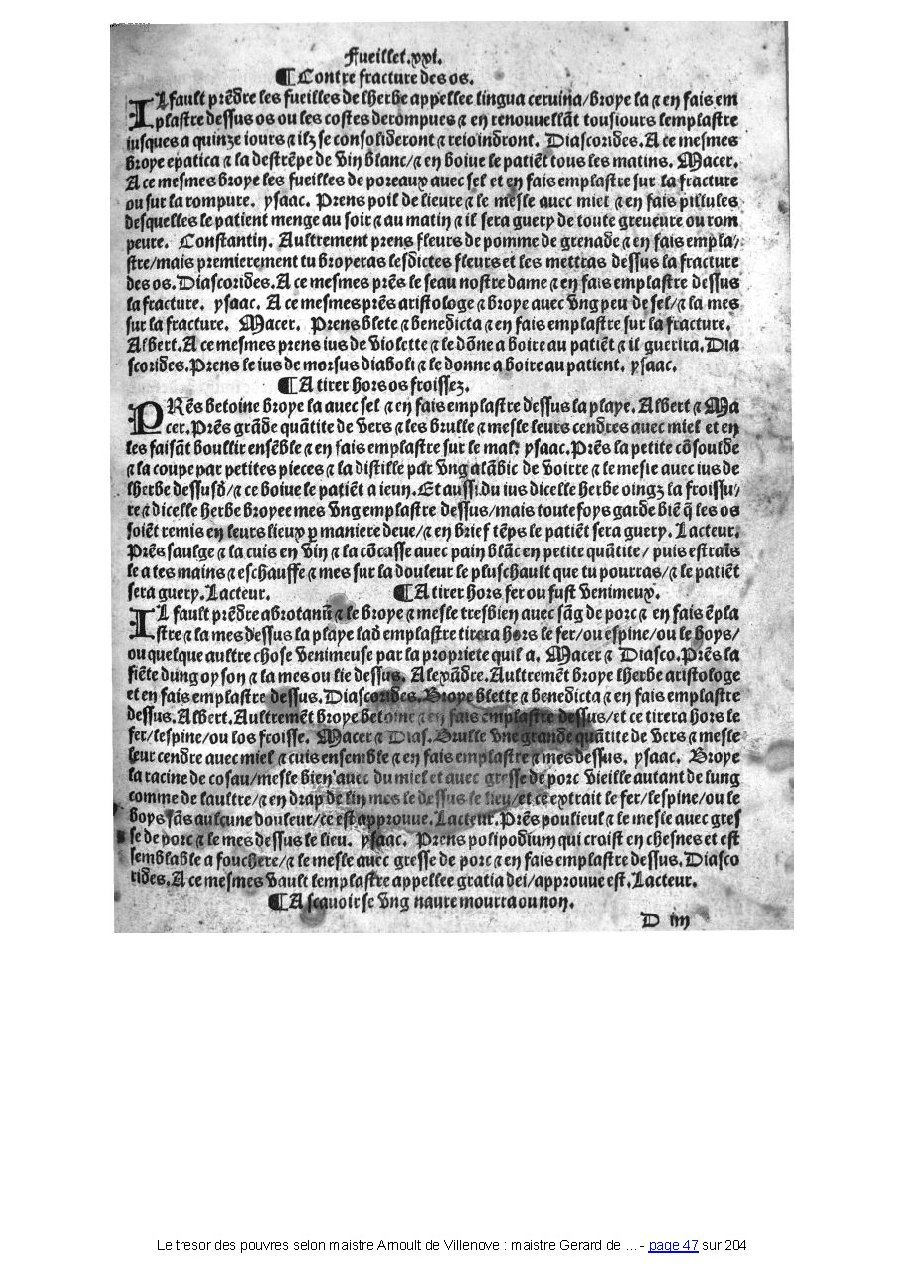 Fueillet.xxi.
¶Contre fracture des os.
IL fault prēdre les fueilles de lherbe appellee lingua ceruina/broye la ⁊ en fais em
plastre dessus os ou les costes derompues ⁊ en renouuellāt tousiours lemplastre
iusques a quinze iours ⁊ ilz se consolideront ⁊ reioindront. Diascorides. A ce mesmes
broye epatica ⁊ la destrēpe de vin blanc/⁊ en boiue le patiēt tous les matins. Macer.
A ce mesmes broye les fueilles de poreaux auec sel et en fais emplastre sur la fracture
ou sur la rompure. ysaac. Prens poil de lieure ⁊ le mesle auec miel ⁊ en fais pillules
desquelles le patient menge au soir ⁊ au matin ⁊ il sera guery de toute greueure ou rom
peure. Constantin. Aultrement prens fleurs de pomme de grenade ⁊ en fais empla/
stre/mais premierement tu broyeras lesdictes fleurs et les mettras dessus la fracture
des os. Diascorides. A ce mesmes prēs le seau nostre dame ⁊ en fais emplastre dessus
la fracture. ysaac. A ce mesmes prēs aristologe ⁊ broye auec vng peu de sel/⁊ la mes
sur la fracture. Macer. Prens blete ⁊ benedicta ⁊ en fais emplastre sur la fracture.
Albert. A ce mesmes prens ius de violette ⁊ le dōne a boire au patiēt ⁊ il guerira. Dia
scorides. Prens le ius de morsus diaboli ⁊ le donne a boire au patient. ysaac.
¶A tirer hors os froissez.
PRēs betoine broye la auec sel ⁊ en fais emplastre dessus la playe. Albert ⁊ Ma
cer. Prēs grāde quātite de vers ⁊ les brulle ⁊ mesle leurs cendres auec miel et en
les faisāt boullir ensēble ⁊ en fais emplastre sur le mal. ysaac. Prēs la petite cōsoulde
⁊ la coupe par petites pieces ⁊ la distille par vng alābic de voirre ⁊ le mesle auec ius de
lherbe dessusd/⁊ ce boiue le patiēt a ieun. Et aussi du ius dicelle herbe oingz la froissu/
re ⁊ dicelle herbe broyee mes vng emplastre dessus/mais toutefoys garde biē q̄ les os
soiēt remis en leurs lieux p maniere deue/⁊ en brief tēps le patiēt sera guery. Lacteur.
Prēs saulge ⁊ la cuis en vin ⁊ la cōcasse auec pain blāc en petite quātite/ puis estrais
le a tes mains ⁊ eschauffe ⁊ mes sur la douleur le plus chault que tu pourras/⁊ le patiēt
sera guery. Lacteur. ¶A tirer hors fer ou fust venimeux.
IL fault prēdre abrotanū ⁊ le broye ⁊ mesle tresbien auec sāg de porc ⁊ en fais ēpla
stre ⁊ la mes dessus la playe lad emplastre tirera hors le fer/ou espine/ou le boys/
ou quelque aultre chose venimeuse par la propriete quil a. Macer ⁊ Diasco. Prēs la
fiēte dung oyson ⁊ la mes ou lie dessus. Alexādre. Aultremēt broye lherbe aristologe
et en fais emplastre dessus. Diascorides. Broye blette ⁊ benedicta ⁊ en fais emplastre
dessus. Albert. Aultremēt broye betoine ⁊ en fais emplastre dessus/et ce tirera hors le
fer/lespine/ou los froisse. Macer ⁊ Dias. Brulle vne grande quātite de vers ⁊ mesle
leur cendre auec miel ⁊ cuis ensemble ⁊ en fais emplastre ⁊ mes dessus. ysaac. Broye
la racine de cosau/mesle bien auec du miel et auec gresse de porc vieille autant de lung
comme de laultre/⁊ en drap de lin mes le dessus le lieu/et ce extrait le fer/lespine/ou le
boys sās aulcune douleur/ce est approuue. Lacteur. Prēs poulieul ⁊ le mesle auec gres
se de porc ⁊ le mes dessus le lieu. ysaac. Prens polipodium qui croist en chesnes et est
semblable a fouchere/⁊ le mesle auec gresse de porc ⁊ en fais emplastre dessus. Diasco
rides. A ce mesmes vault lemplastre appellee gratia dei/approuue est. Lacteur.
¶A scauoir se vng naure mourra ou non.
D iiij
Le tresor des pouvres selon maistre Arnoult de Villenove : maistre Gerard de ... - page 47 sur 204